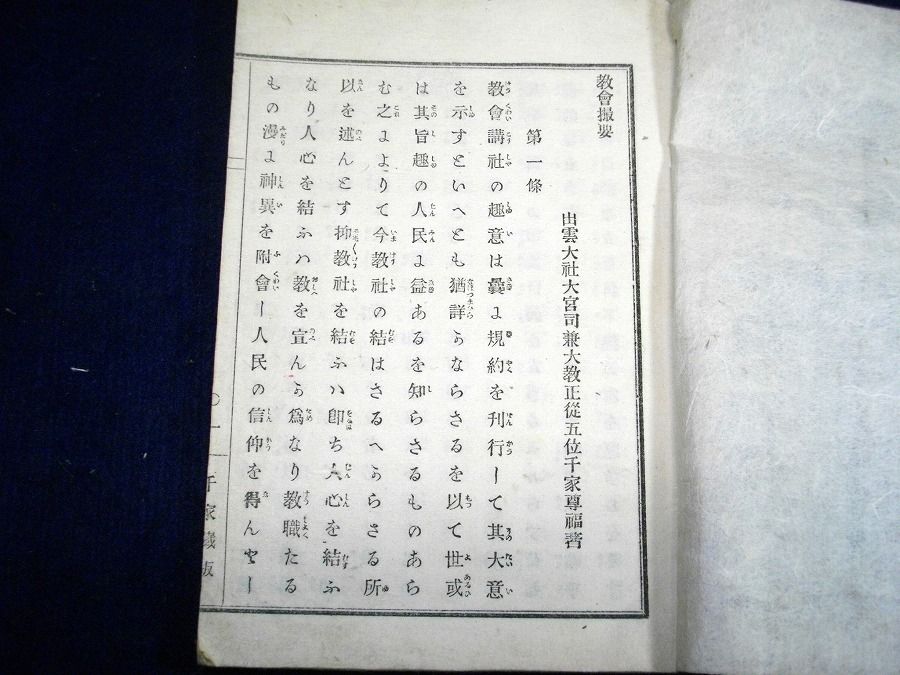 教會撮要
出雲大社大宮司兼大教正從五位千家尊福著
第一條
教會講社の趣意は曩よ規約を刊行して其大意
を示すといへとも猶詳うならさるを以て世或
は其旨趣の人民よ益あるを知らさるものあら
む之よよりて今教社の結はさるへうらさる所
以を述んとす抑教社を結ふハ卽ち人心を結ふ
なり人心を結ふハ教を宣んう爲なり教職たる
もの漫よ神異を附會し人民の信仰を得んとし
〇一
千家藏版